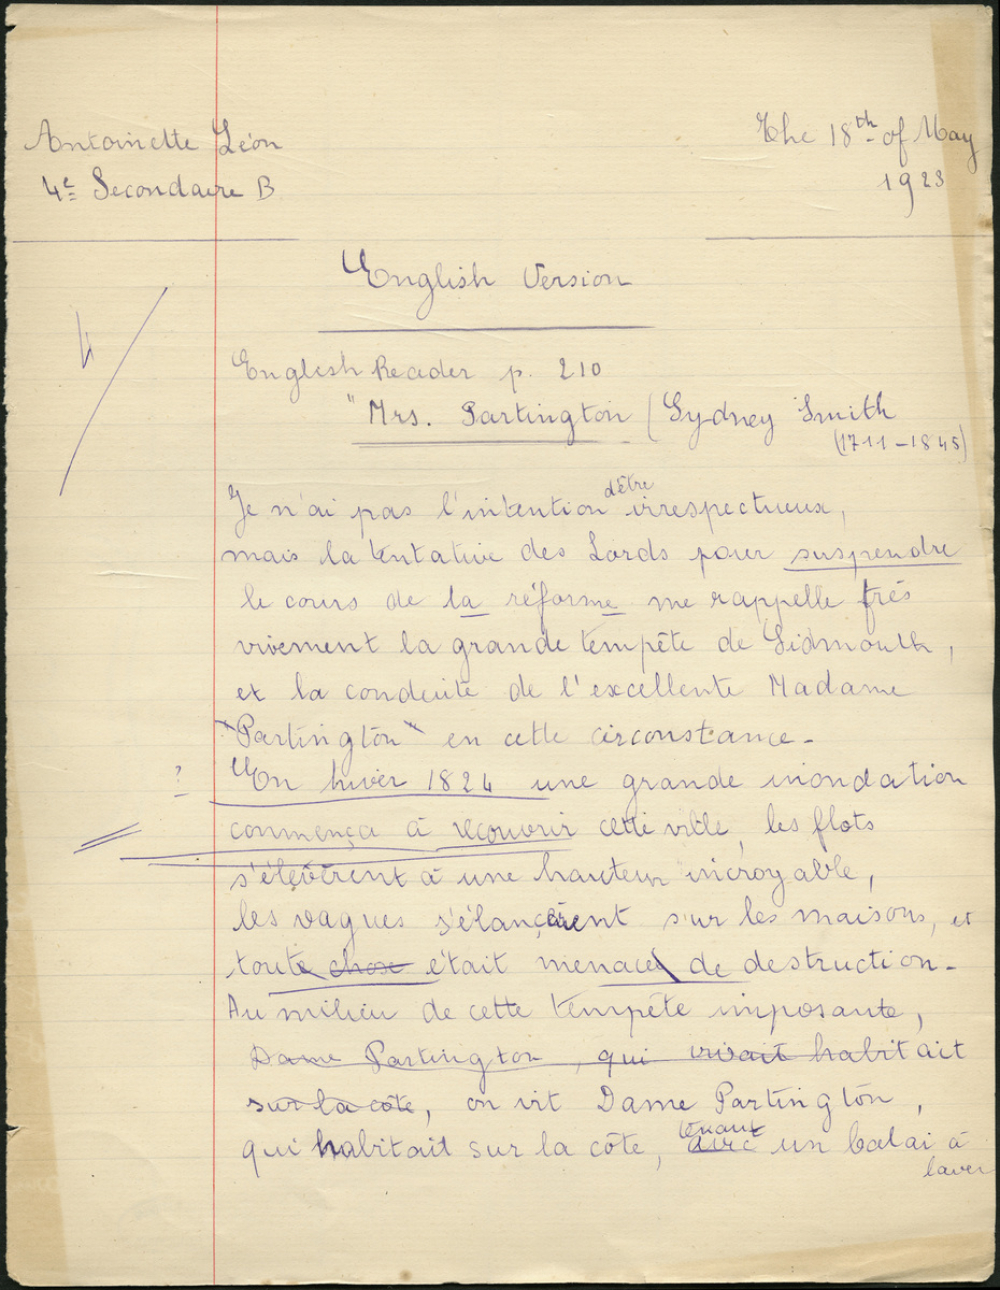 Antoinette Léon
The 18th of May
4e Secondaire B
1923
English Version
English Reader p. 210
"Mrs. Partington (Sydney Smith
(1711-1845)
Je n'ai pas l'intention d'être irrespectueux,
mais la tentative des Lords pour suspendre
le cours de la réforme me rappelle très
vivement la grande tempête de Sidmouth,
et la conduite de l'excellente Madame
"Partington" en cette circonstance.
? En hiver 1824 une grande inondation
commença à recouvrir cette ville, les flots
s'élevèrent à une hauteur incroyable,
les vagues s'élancèrent sur les maisons, et
toute chose était menacé de destruction.
Au milieu de cette tempête imposante,
Dame Partington, qui vivait habitait
sur la côte, on vit Dame Partington,
qui habitait sur la côte, avec tenant un balai à
laver